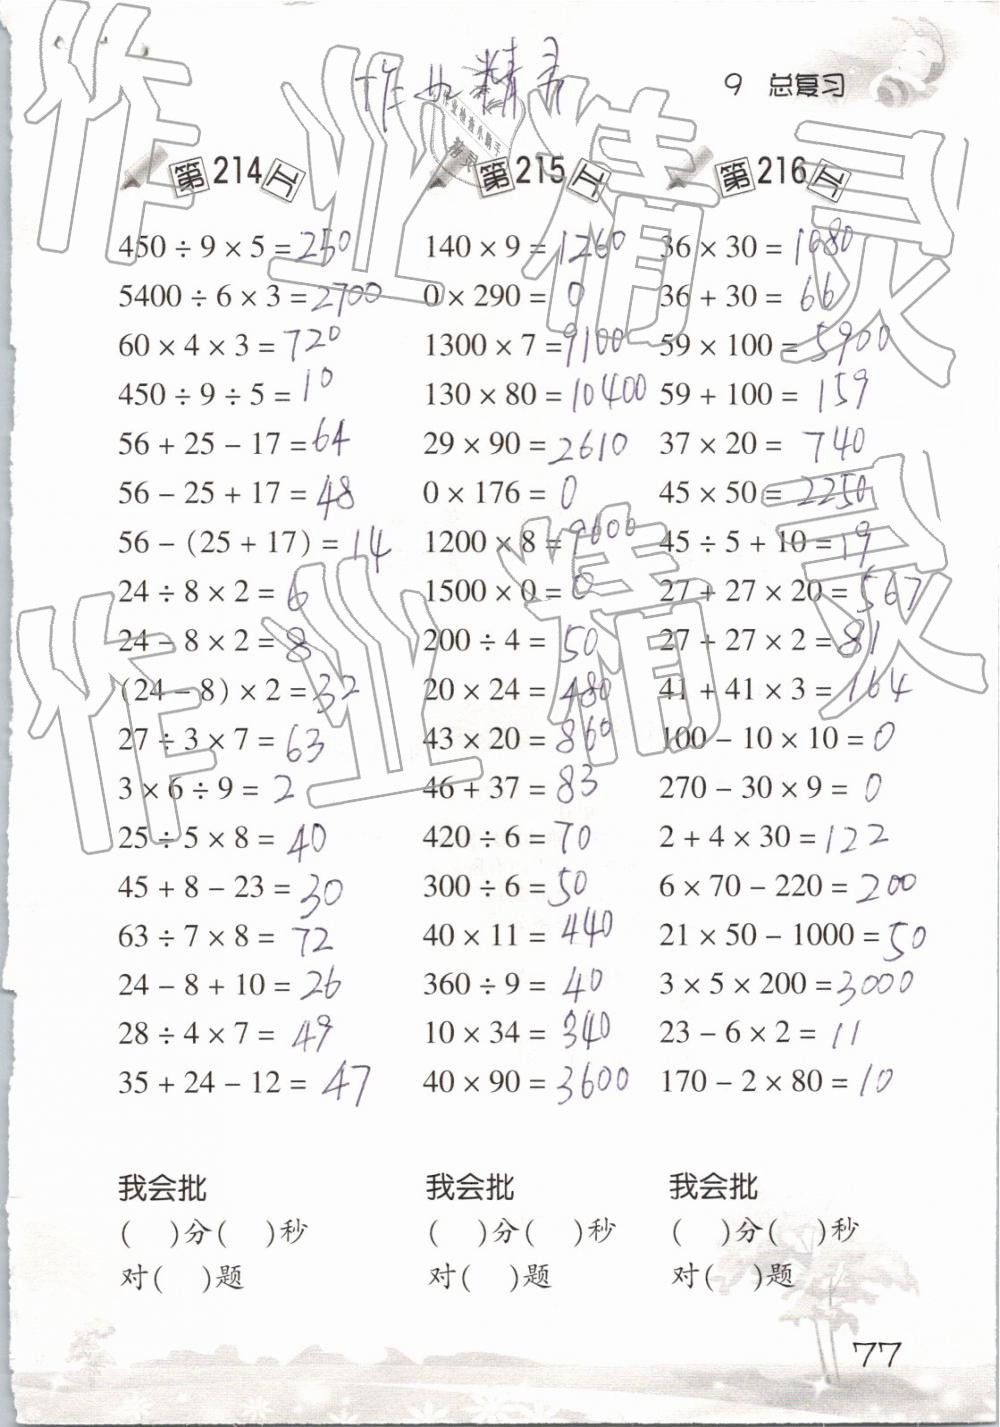 作业精灵
9 总复习
第214天
450 ÷ 9 × 5 = 250
5400 ÷ 6 × 3 = 2700
60 × 4 × 3 = 720
450 ÷ 9 ÷ 5 = 10
56 + 25 - 17 = 64
56 - 25 + 17 = 48
56 - (25 + 17) = 14
24 ÷ 8 × 2 = 6
24 - 8 × 2 = 8
(24 - 8) × 2 = 32
27 ÷ 3 × 7 = 63
3 × 6 ÷ 9 = 2
25 ÷ 5 × 8 = 40
45 + 8 - 23 = 30
63 ÷ 7 × 8 = 72
24 - 8 + 10 = 26
28 ÷ 4 × 7 = 49
35 + 24 - 12 = 47
我会批
( )分( )秒
对( )题
第215天
140 × 9 = 1260
0 × 290 = 0
1300 × 7 = 9100
130 × 80 = 10400
29 × 90 = 2610
0 × 176 = 0
1200 × 8 = 9600
1500 × 0 = 0
200 ÷ 4 = 50
20 × 24 = 480
43 × 20 = 860
46 + 37 = 83
420 ÷ 6 = 70
300 ÷ 6 = 50
40 × 11 = 440
360 ÷ 9 = 40
10 × 34 = 340
40 × 90 = 3600
我会批
( )分( )秒
对( )题
第216天
36 × 30 = 1080
36 + 30 = 66
59 × 100 = 5900
59 + 100 = 159
37 × 20 = 740
45 × 50 = 2250
45 ÷ 5 + 10 = 19
27 + 27 × 20 = 567
27 + 27 × 2 = 81
41 + 41 × 3 = 164
100 - 10 × 10 = 0
270 - 30 × 9 = 0
2 + 4 × 30 = 122
6 × 70 - 220 = 200
21 × 50 - 1000 = 50
3 × 5 × 200 = 3000
23 - 6 × 2 = 11
170 - 2 × 80 = 10
我会批
( )分( )秒
对( )题
77
作业精灵
作业精灵